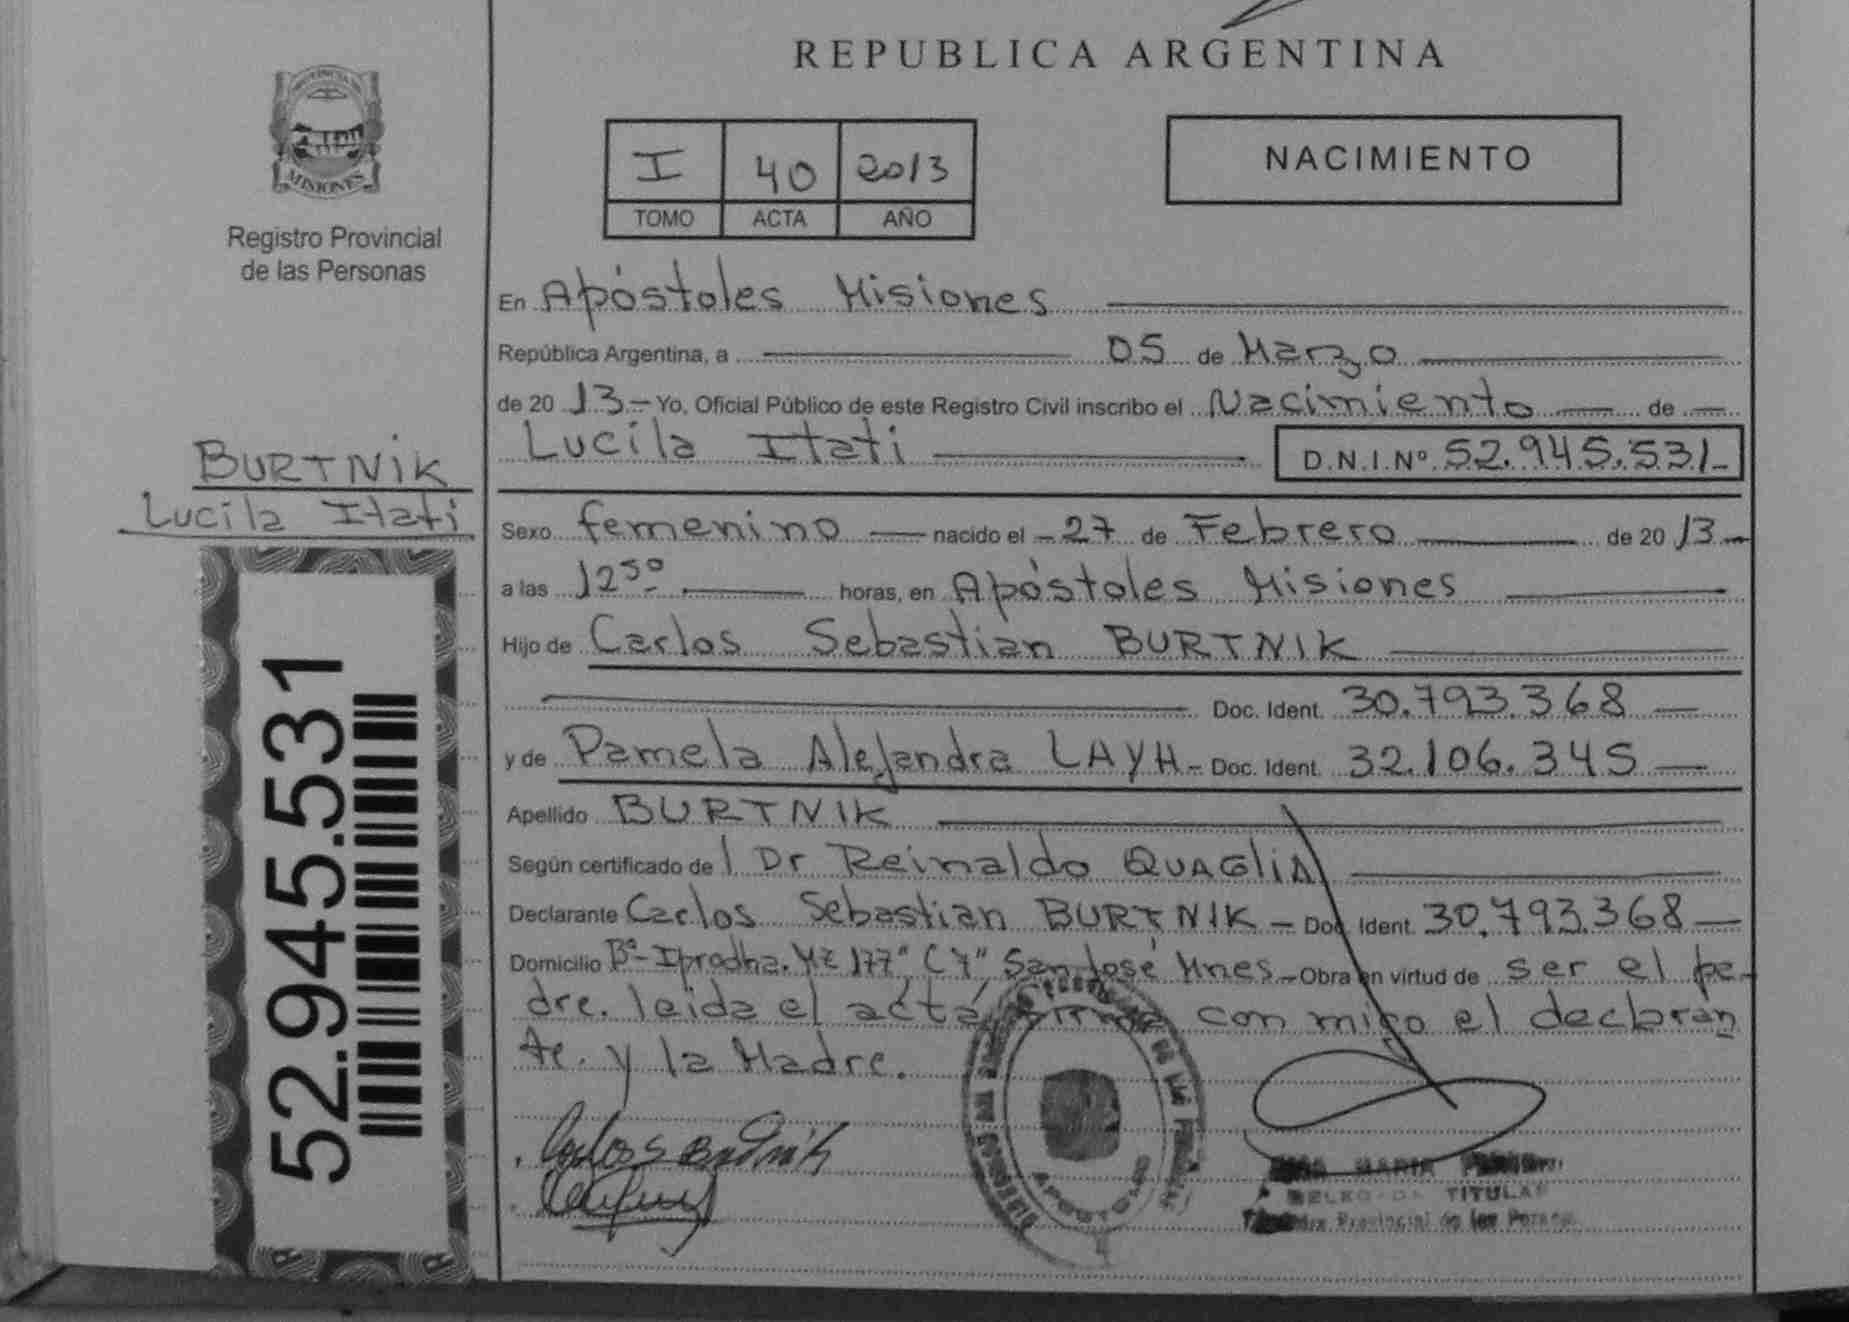 REPUBLICA ARGENTINA
PROVINCIA DE
MISIONES
Registro Provincial
de las Personas
I 40 2013
TOMO ACTA AÑO
NACIMIENTO
En Apóstoles Misiones
República Argentina, a 05 de Marzo
de 20 13 - Yo, Oficial Público de este Registro Civil inscribo el Nacimiento de
Lucila Itati D.N.I.Nº 52.945.531-
BURTNIK
Lucila Itati
Sexo femenino nacido el - 27 de Febrero de 20 13-
a las 12⁵⁰ horas, en Apóstoles Misiones
Hijo de Carlos Sebastian BURTNIK
Doc. Ident. 30.793.368
y de Pamela Alejandra LAYH - Doc. Ident. 32.106.345
Apellido BURTNIK
Según certificado de l Dr Reinaldo QUAGLIA
Declarante Carlos Sebastian BURTNIK - Doc. Ident. 30.793.368
Domicilio Bº Iprodha. Mz 177" C 7" San José Mnes - Obra en virtud de ser el pa-
dre. leida el acta firma con migo el declaran
te. y la Madre.
52.945.531
Carlos S Burtnik
APOSTOLES
MARIA
TITULAR
Provincial de las Personas